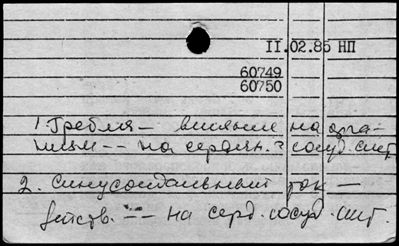 II.02.85 НП
60749
60750
1. Гребля — влияние на орга-
низм -- на сердечн. сосуд. сист.
2. Синусоидальный ток —
действ. -"- на серд. сосуд. сист.